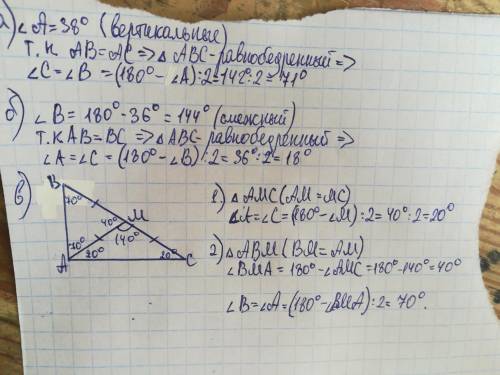 а) ∠A=38° (вертикальные)
Т.К AB=AC => △ ABC-равнобедренный =>
∠C=∠B =(180°-∠A):2=142°:2=71°
б) ∠B= 180°-36°=144° (смежный)
Т.К AB=BC => △ABC-равнобедренный =>
∠A=∠C=(180°-∠B):2=36°:2=18°
в)
B
70°
40° M
140°
70°
20°
20°
A
C
1) △AMC(AM=MC)
∠A=∠C=(180°-∠M):2=40°:2=20°
2) △ABM(BM=AM)
∠BMA=180°-∠AMC=180°-140°=40°
∠B=∠A=(180°-∠BMA):2=70°.